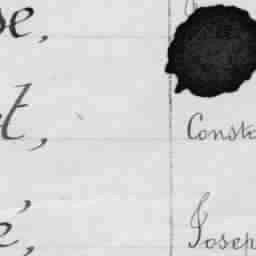 se,
t, Consta
e, Josep